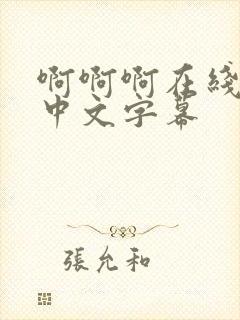 啊啊啊在线
中文字幕
張允和